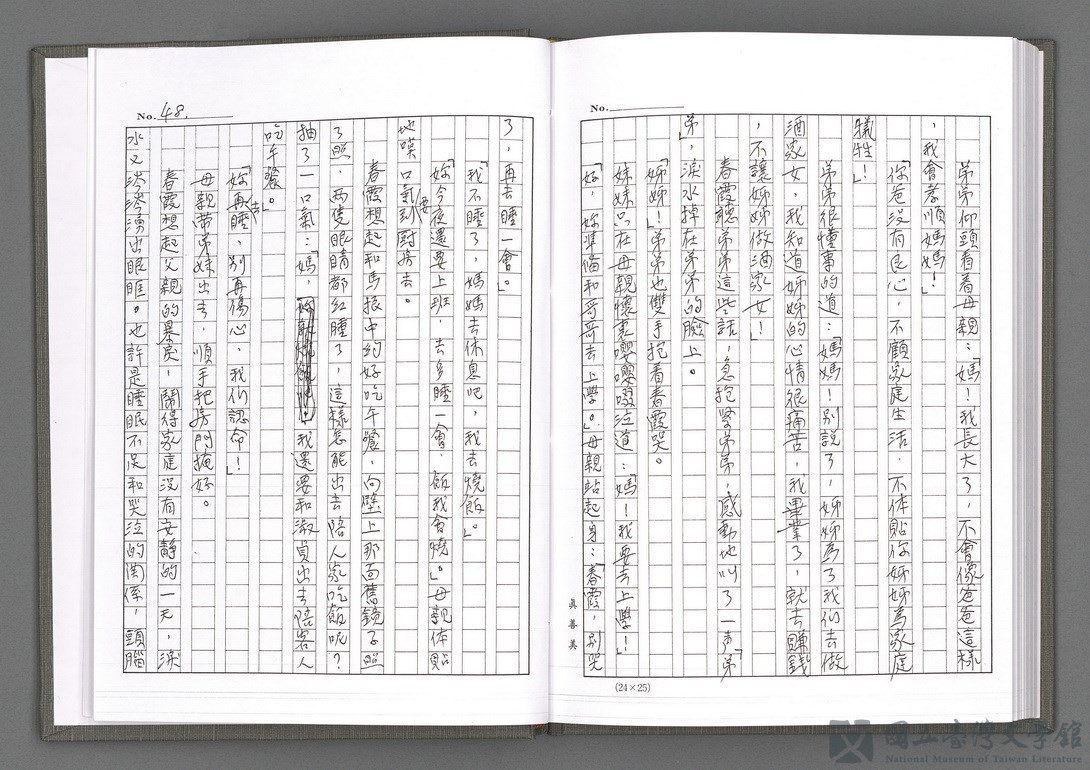 No.
弟弟仰頭看着母親：「媽！我長大了，不會像爸爸這樣
，我會孝順媽媽！」
「你爸沒有良心，不顧家庭生活，不体貼你姊姊為家庭
犧牲！」
弟弟很懂事的道：「媽媽！別說了，姊姊為了我们去做
酒家女，我知道姊姊的心情很痛苦，我畢業了，就去賺錢
，不讓姊姊做酒家女！」
春霞聽弟弟這些話，急抱緊弟弟，感動地叫了一声「弟
弟」，淚水掉在弟弟的臉上。
「姊姊！」弟弟也雙手抱着春霞哭。
妹妹只在母親懷裏嚶嚶啜泣道：「媽！我要去上學！」
「好，妳準備和哥哥去上學。」母親站起身：「春霞，別哭
眞善美
(24×25)
No. 48.
了，再去睡一會。」
「我不睡了，媽媽去休息吧，我去燒飯。」
「妳今夜還要上班，去多睡一會，飯我會燒。」母親体貼
地嘆口氣要到厨房去。
春霞想起和馬振中約好吃午餐，向壁上那面舊鏡子照
了照，兩隻眼睛都紅腫了，這樣怎能出去陪人家吃飯呢？
抽了一口氣：「媽，我還要和淑貞出去陪客人
吃午餐。」
「妳再去睡，別再傷心，我们認命！」
母親帶弟妹出去，順手把房門掩好。
春霞想起父親的暴戾，鬧得家庭沒有安靜的一天，淚
水又涔涔湧出眼眶。也許是睡眠不足和哭泣的関係，頭腦
國立臺灣文學館
National Museum of Taiwan Literature